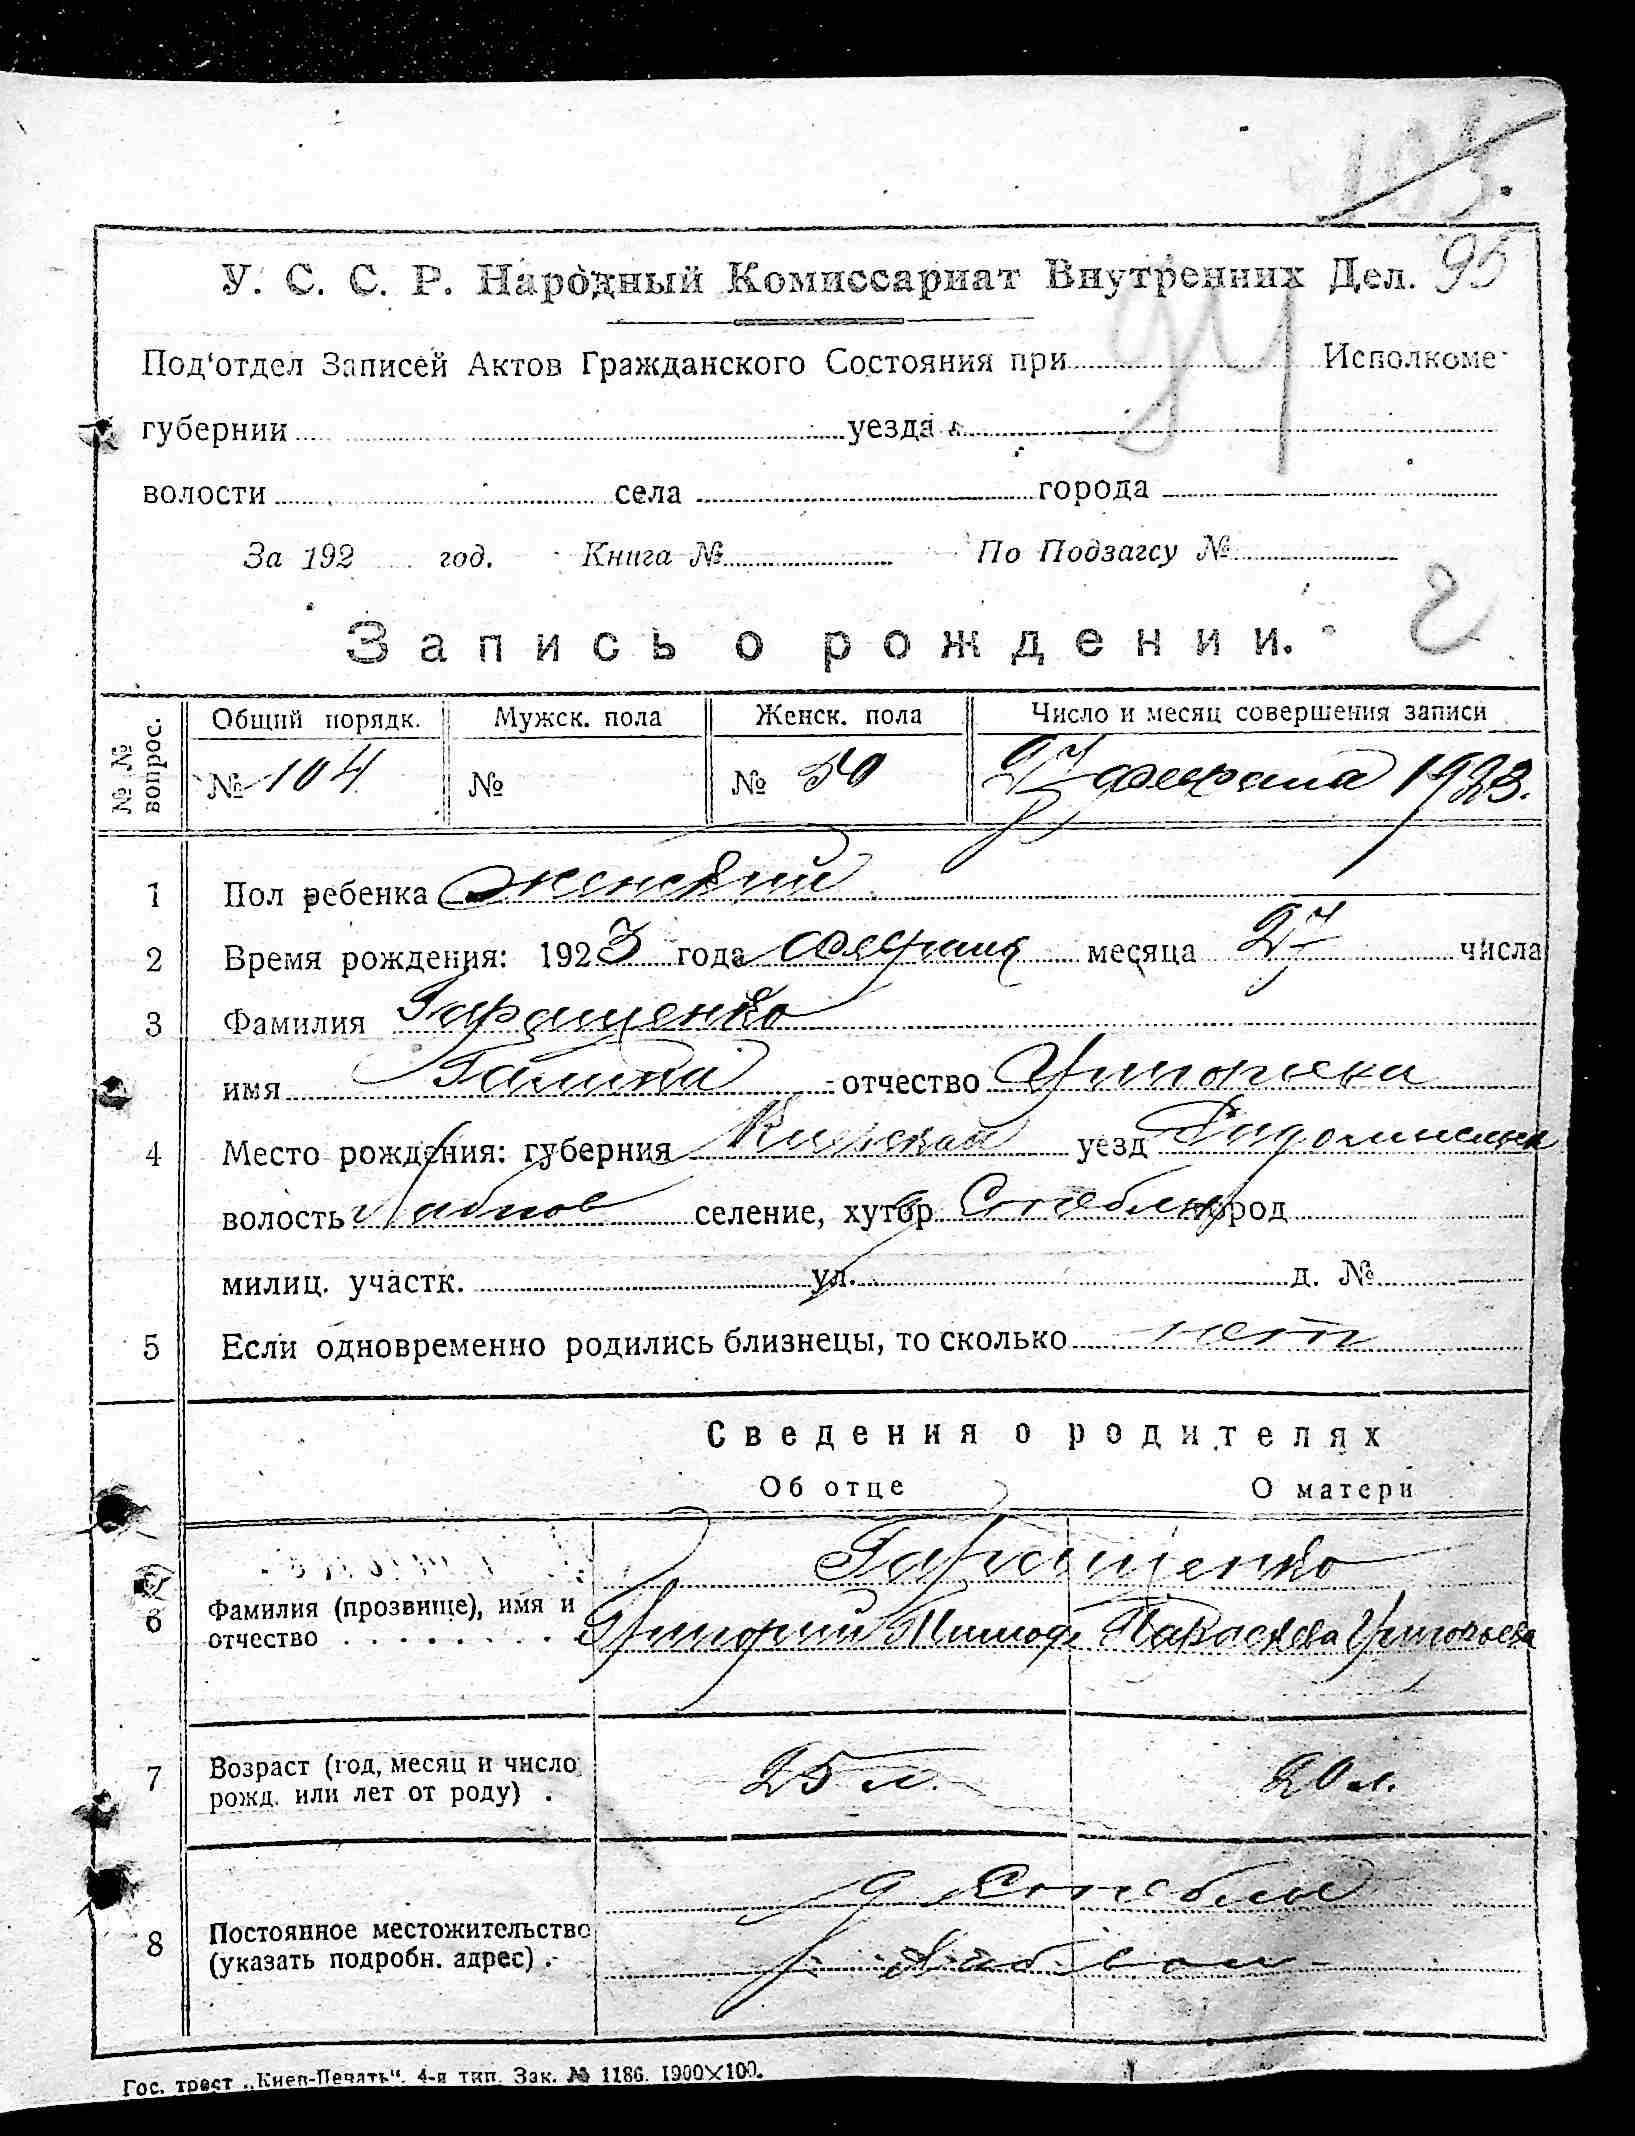 105.
95
94
У. С. С. Р. Народный Комиссариат Внутренних Дел.
Под'отдел Записей Актов Гражданского Состояния при Исполкоме
губернии уезда
волости села города
За 192 год. Книга № По Подзагсу №
Запись о рождении.
№ № вопрос. Общий порядк. Мужск. пола Женск. пола Число и месяц совершения записи
№ 104 № № 50 27 февраля 1923.
1 Пол ребенка женский
2 Время рождения: 1923 года февраля месяца 27 числа
3 Фамилия Гаращенко
имя Галина отчество Григорьева
4 Место рождения: губерния Киевская уезд Радомысльск
волость селение, хутор город
милиц. участк. ул. д. №
5 Если одновременно родились близнецы, то сколько нет
Сведения о родителях
Об отце О матери
Гаращенко
6 Фамилия (прозвище), имя и
отчество Григорий Тимоф Параскева Григорьева
7 Возраст (год, месяц и число
рожд. или лет от роду) 25 л. 20 л.
8 Постоянное местожительство
(указать подробн. адрес)
Гос. трест „Киев-Печать". 4-я тип. Зак. № 1186. 1900×100.